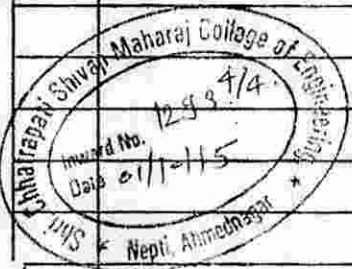 Shri Chhatrapati Shivaji Maharaj College of Engineering
Inward No. 1293 4/4
Date 01/1-115
* Nepti, Ahmednagar *